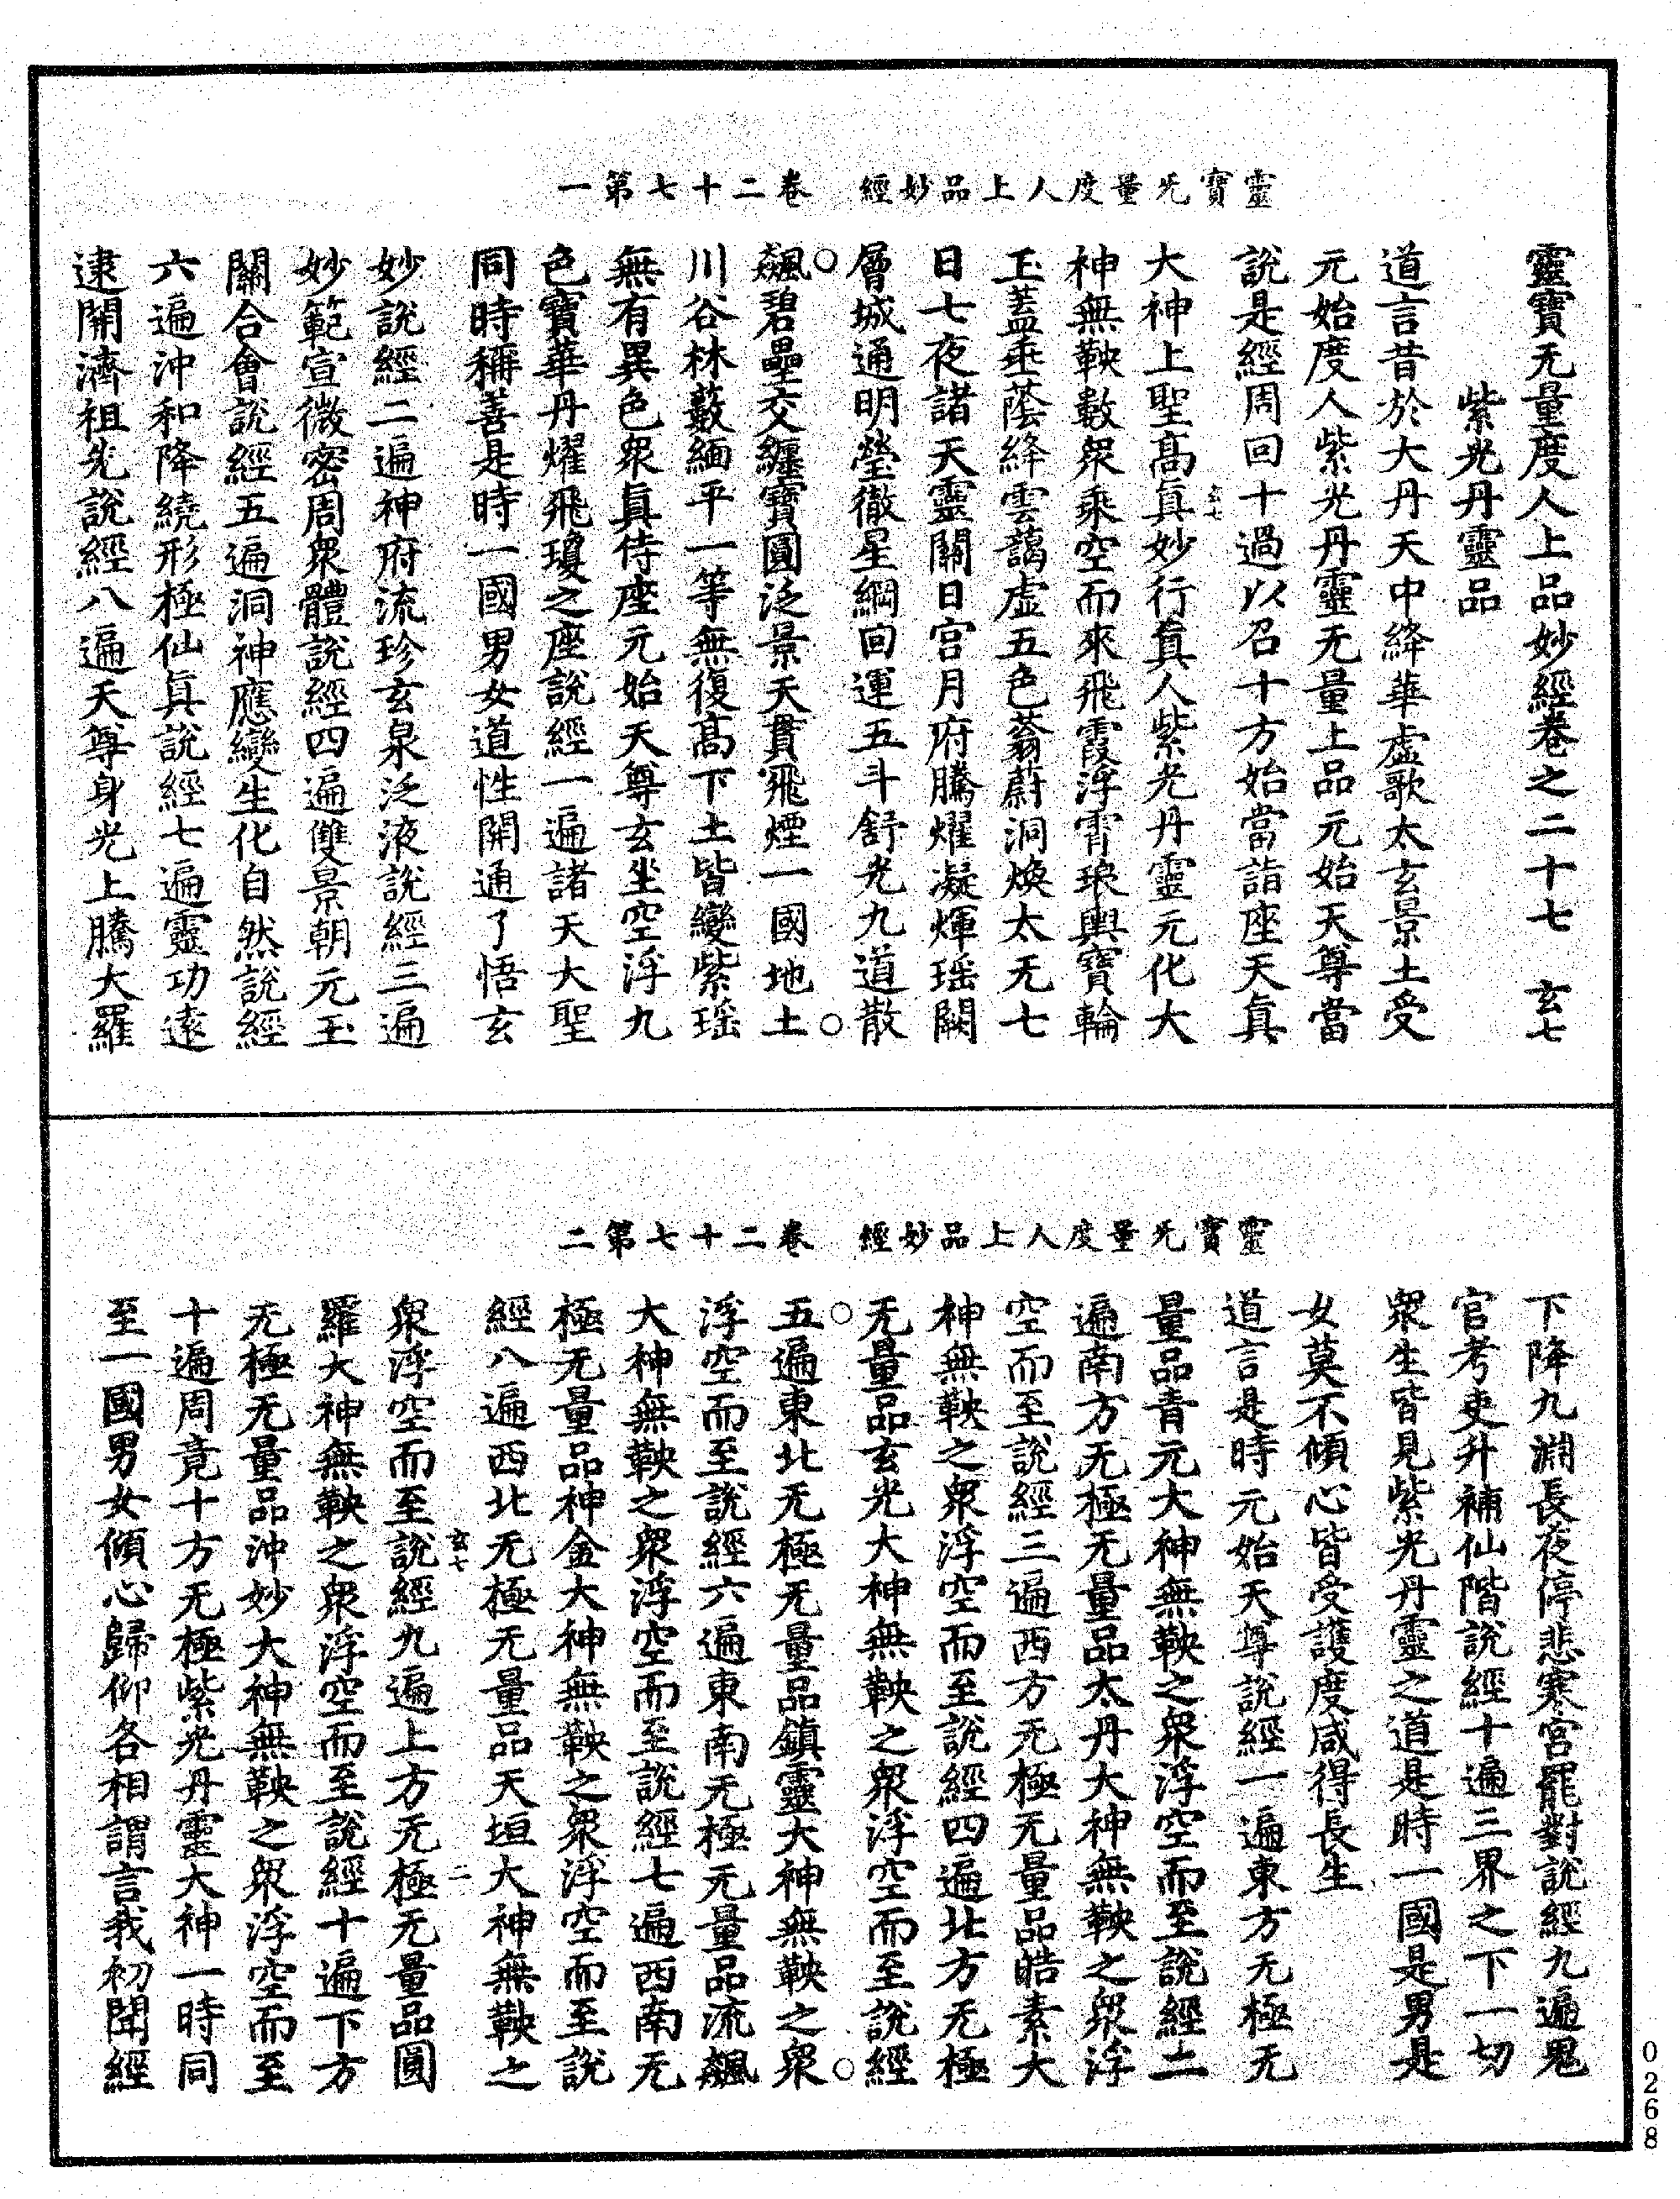 靈寶无量度人上品妙經　卷二十七第一
靈寶无量度人上品妙經卷之二十七　玄七
紫光丹靈品
道言昔於大丹天中絳華虛歌太玄景土受
元始度人紫光丹靈无量上品元始天尊當
說是經周回十過以召十方始當詣座天真
大神上聖高真妙行真人紫光丹靈元化大
玄七
神無鞅數衆乘空而來飛霞浮霄琅輿寶輪
玉蓋垂蔭絳雲藹虛五色蓊蔚洞煥太无七
日七夜諸天靈關日宮月府騰燿凝煇瑶闕
層城通明瑩徹星綱回運五斗舒光九道散
飆碧壘交纏寶圓泛景天貫飛煙一國地土
川谷林藪緬平一等無復高下土皆變紫瑶
無有異色衆真侍座元始天尊玄坐空浮九
色寶華丹燿飛瓊之座說經一遍諸天大聖
同時稱善是時一國男女道性開通了悟玄
妙說經二遍神府流珍玄泉泛液說經三遍
妙範宣微密周衆體說經四遍雙景朝元玉
關合會說經五遍洞神應變生化自然說經
六遍沖和降繞形極仙真說經七遍靈功遠
逮開濟祖先說經八遍天尊身光上騰大羅
靈寶无量度人上品妙經　卷二十七第二
下降九淵長夜停悲寒宮罷對說經九遍鬼
官考吏升補仙階說經十遍三界之下一切
衆生皆見紫光丹靈之道是時一國是男是
女莫不傾心皆受護度咸得長生
道言是時元始天尊說經一遍東方无極无
量品青元大神無鞅之衆浮空而至說經二
遍南方无極无量品太丹大神無鞅之衆浮
空而至說經三遍西方无極无量品皓素大
神無鞅之衆浮空而至說經四遍北方无極
无量品玄光大神無鞅之衆浮空而至說經
五遍東北无極无量品鎮靈大神無鞅之衆
浮空而至說經六遍東南无極无量品流飆
大神無鞅之衆浮空而至說經七遍西南无
極无量品神金大神無鞅之衆浮空而至說
經八遍西北无極无量品天垣大神無鞅之
玄七　二
衆浮空而至說經九遍上方无極无量品圓
羅大神無鞅之衆浮空而至說經十遍下方
无極无量品沖妙大神無鞅之衆浮空而至
十遍周竟十方无極紫光丹靈大神一時同
至一國男女傾心歸仰各相謂言我初聞經
0268